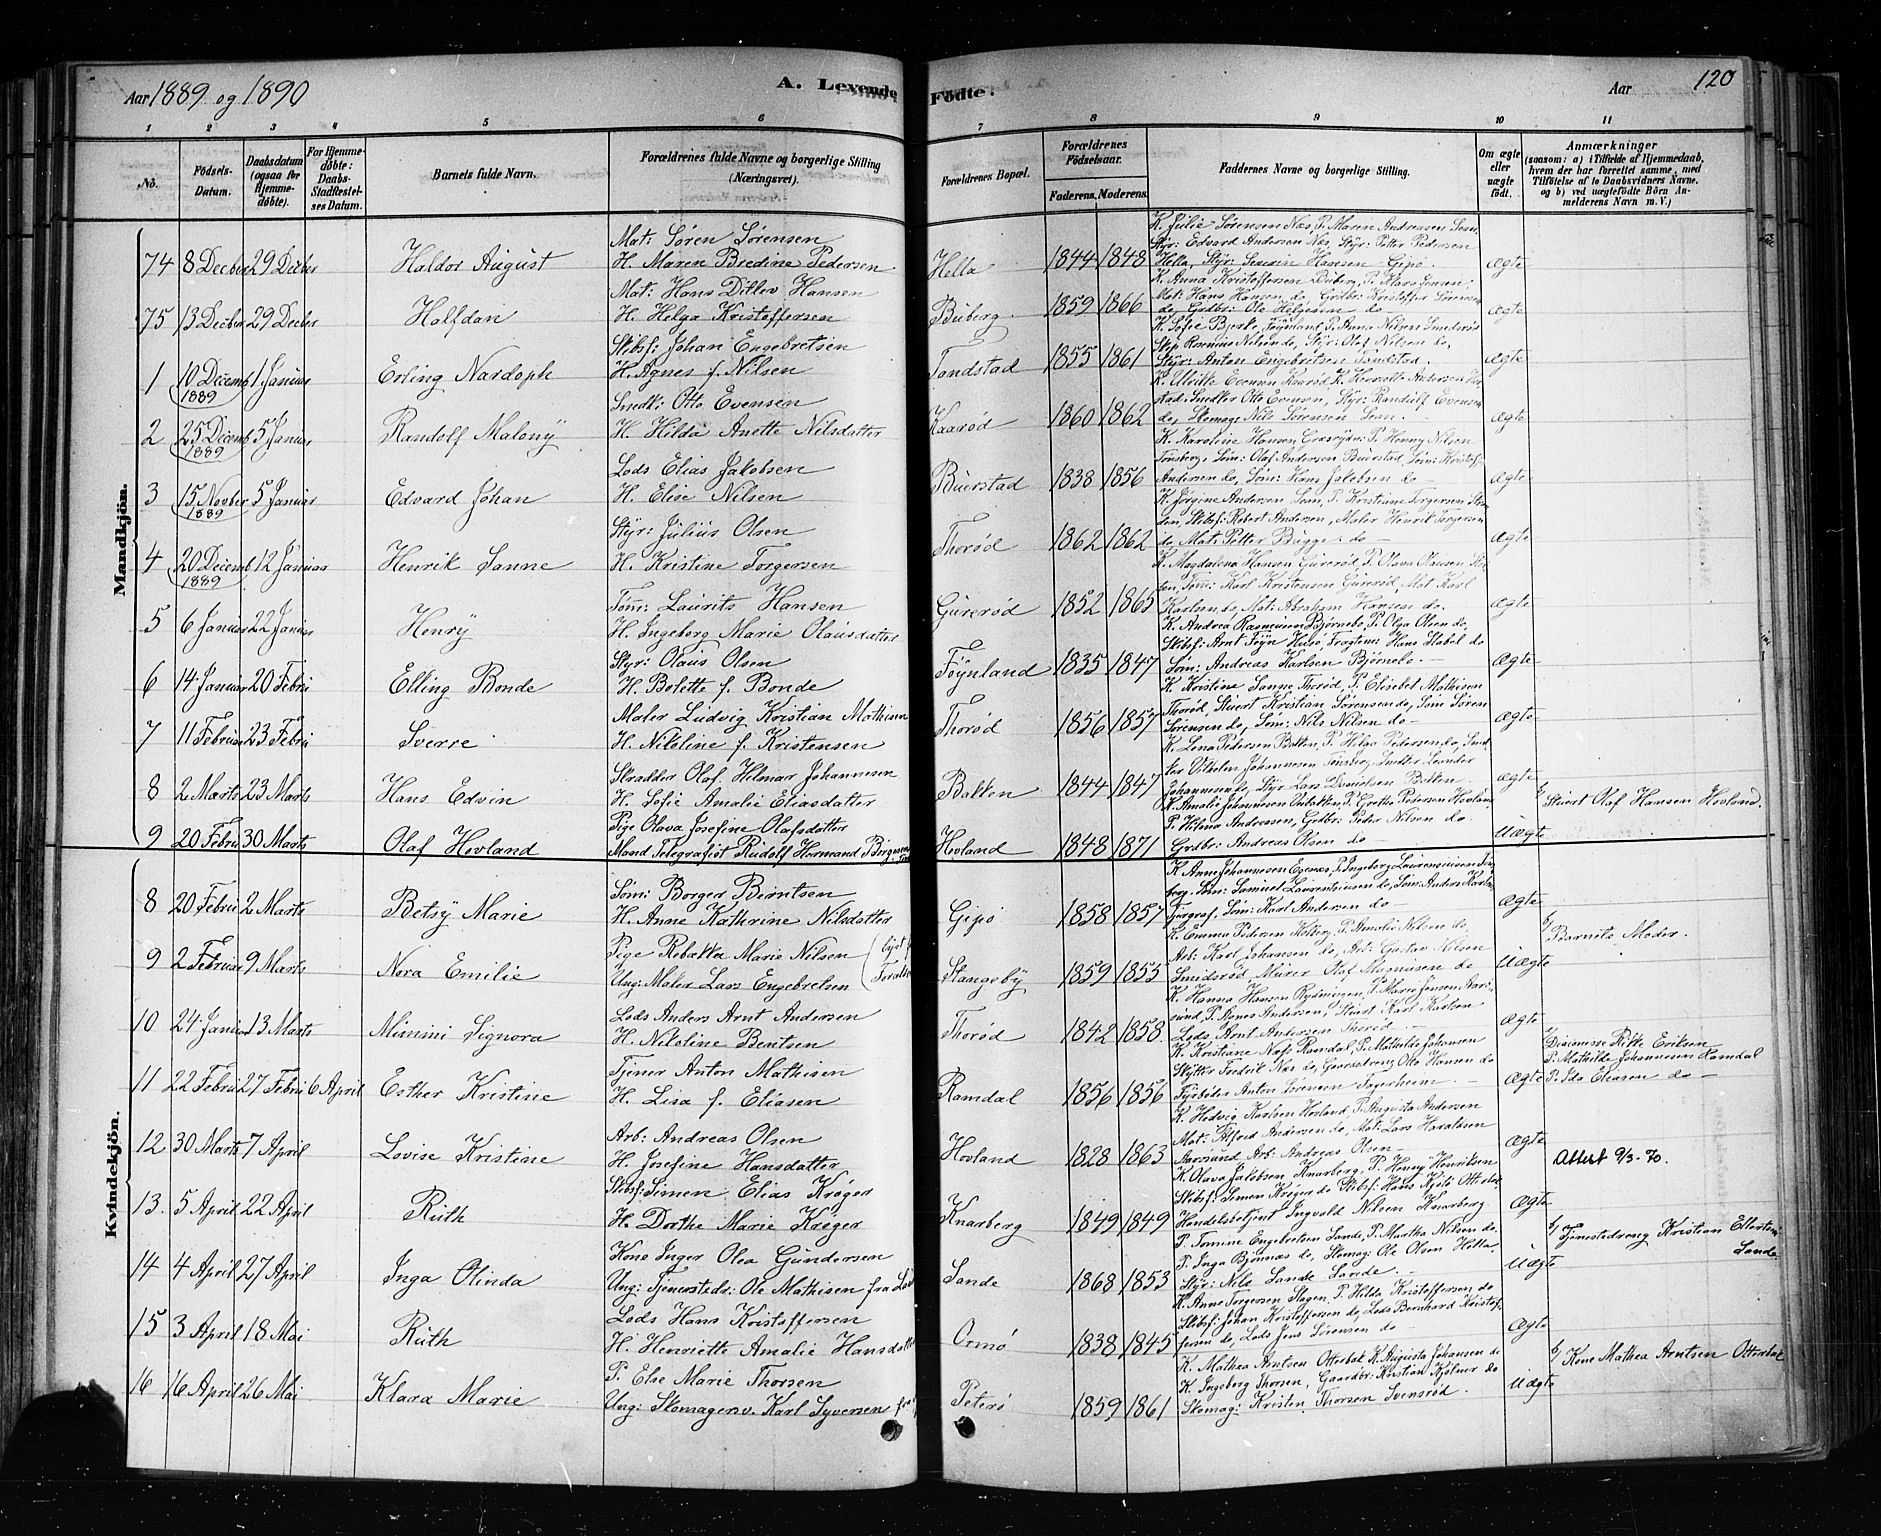 Aar 1889 og 1890
A. Levende Fødte.
Aar
120
1 2 3 4 5 6 7 8 9 10 11
No.
Fødsels-Datum.
Daabsdatum (ogsaa for Hjemmedøbte).
For Hjemmedøbte: Daabs-Stadfæstelses Datum.
Barnets fulde Navn.
Forældrenes fulde Navne og borgerlige Stilling (Næringsvei).
Forældrenes Bopæl.
Forældrenes Fødselsaar.
Faderens. Moderens.
Faddernes Navne og borgerlige Stilling.
Om ægte eller uægte født.
Anmærkninger
(saasom: a) i Tilfælde af Hjemmedaab, hvem der har forrettet samme, med Tilføielse af to Daabsvidners Navne. og b) ved uægtefødte Börn Anmelderens Navn m. V.)
Mandkjön.
74 8 Decber 29 Dcber Haldor August
Mat: Sören Sörensen
H. Maren Bredine Pedersen
Hella 1844 1848
K. Julie Sørensen Næs, P. Maren Andreasen Sem,
Styr: Edvard Andersen Næs, Styr: Petter Pedersen
Hella, Styr: Severin Hansen Gipø
Ægte
75 13 Decber 29 Decber Halfdan
Mat: Hans Ditlev Hansen
H. Helga Kristoffersen
Buberg 1859 1866
K. Anna Kristoffersen Buberg, P. Klara Jensen,
Mat: Hans Hansen do, Grdbr: Kristoffer Sørensen
do, Grdbr: Ole Helgesen do
ægte
1 10 Decemb 1889 1 Januar Erling Nardoph
Skibsf: Johan Engebretsen
H. Agnes f. Nilsen
Tandstad 1855 1861
K. Sofie Bjerke, Føynland, P. Anna Nilsen Smidsrød
Skip Rasmus Nilsen do, Styr: Olaf Nilsen do,
Styr: Anton Engebretsen Tandstad.
Ægte
2 25 Decemb 1889 5 Januar Randolf Malony
Smedl: Otto Evensen
H. Hilda Anette Nilsdatter
Kaarød 1860 1862
do, Skomag: Nils Sörensen Sem.
Ægte
3 15 Novber 1889 5 Januar Edvard Johan
Lods Elias Jakobsen
H. Elise Nilsen
Buerstad 1838 1856
Tønsberg, Søm: Olaf Andersen Buerstad, Søm: Kristoff
Andersen do, Søm: Hans Jakobsen do
Ægte
4 20 Decemb 1889 12 Januar Henrik Sanne
Styr: Julius Olsen
H. Kristine Torgersen
Thorød 1862 1862
K. Jørgine Andersen Sem, P. Kristiane Torgersen
Skibsf: Robert Andersen, Maler Henrik Torgersen
do, Mat: Petter Bugge do
ægte
5 6 Januar 22 Januar Henry
Tøm: Laurits Hansen
H. Ingeborg Marie Olausdatter
Gurerød 1852 1865
K. Magdalena Hansen Gurerød, P. Olava Olausen
Tøm: Karl Kristensen Gurerød, Mat Karl
Karlsen do, Mat: Abraham Hansen do.
Ægte
6 14 Januar 20 Febru Elling Bonde
Styr: Olaus Olsen
H. Bolette f. Bonde
Føynland 1835 1847
K. Andrea Rasmussen Bjørnebo, P. Olga Olsen do,
Skibsf: Arnt Føyn Husø, Hans Stabel do
Søm: Andreas Karlsen Bjørnebo.
Ægte
7 11 Februar 23 Febru Sverre
Maler Ludvig Kristian Mathisen
H. Niloline f. Kristensen
Thorød 1856 1857
K. Kristine Sanne Thorød, P. Elisabet Mathisen
Thorød, Stuert Kristian Sørensen do, Søm Søren
Sörensen do, Søm: Nils Nilsen do
Ægte
8 2 Marts 23 Marts Hans Edvin
Skrædder Olaf Hilmar Johannesen
H. Sofie Amalie Eliasdatter
Bakken 1844 1847
K. Lena Pedersen Bakken, P. Helga Pedersen do, Snd
ker Vilhelm Johannesen Tønsberg, Snedker Leander
Johannesen do, Styr Lars Danielsen Bakken
Ægte
9 20 Febru 30 Marts Olaf Hovland
Pige Olava Josefine Olafsdatter
Mand Telegrafist Rudolf Hermand
Hovland 1848 1871
P. Hilena Andreasen, Grdbr: Peder Nilsen do
Grdbr: Andreas Olsen do
Uægte
b/ Stuert Olaf Hansen Hovland.
Kvindekjön.
8 20 Febru 2 Marts Betsy Marie
Søm: Borger Berntsen
H. Anne Kathrine Nilsdatter
Gipø 1858 1857
Søm: Samuel Laurentsiusen do, Søm: Anders
Søm: Karl Andersen do
Ægte
9 2 Februar 9 Marts Nora Emilie
Pige Rebakka Marie Nilsen
Ung: Maler Lars Engebretsen
Stangeby 1859 1855
K. Emma Pedersen Holberg, P. Amalie Nilsen do,
Arb: Karl Johansen do, Arb: Gustav Nilsen
Smidsrød Murer Olaf Magnusen do
Uægte
b/ Barnets Moder.
10 24 Januar 13 Marts Mimmi Signora
Lods Anders Arnt Andersen
H. Niloline Bentsen
Thorød 1842 1858
K. Hanna Hansen Rydningen, P. Marie Jensen Aarøsund, P. Agnes Andersen, Stuert Karl Karlsen
Lods Arnt Andersen Thorød
Ægte
11 22 Febru 27 Febru 6 April Esther Kristine
Tjener Anton Mathisen
H. Lisa f. Eliasen
Ramdal 1856 1856
K. Kristiane Næss Ramdal, P. Mathilde Johansen
Skytter Fredrik Næs do, Otto Hansen do
Fyrbøder Anton Sørensen
Ægte
a/ Diakonisse Rikke Eriksen
P. Mathilde Johannesen Ramdal
P. Ida Eliasen do
12 30 Marts 7 April Lovise Kristine
Arb: Andreas Olsen
H. Josefine Hansdatter
Hovland 1828 1863
K. Hedvig Karlsen Hovland, P. Augusta Andersen
Mat: Alfred Andersen do, Mat: Lars Haraldsen
Aarøsund Arb: Andreas Olsen
Ægte
Attest 9/3-70.
13. 5 April 22 April Ruth
Skibsf: Simen Elias Krøger
H. Dorthe Marie Krøger
Knarberg 1849 1849
K. Olava Jakobsen Knarberg, P. Henny Henriksen
Skibsf: Simen Krøger do Skibsf: Hans
Handelsbetjent Ingvald Nilsen Knarberg
Ægte
14 4 April 27 April Inga Olinda
Kone Inger Olea Gundersen
Ung: Tjenersteds: Ole Mathisen fra
Sande 1868 1853
P. Tomine Engebretsen Sande, P. Martha Nilsen do,
P. Inga Bjønnæs do, Skomag: Ole Olsen Hella
Styr: Nils Sande Sande.
Uægte
b/ Tjenestedreng Kristian Ellertsen Sande
15 3 April 18 Mai Ruth
Lods Hans Kristoffersen
H. Henriette Amalie Hansdatter
Ormø 1838 1845
K. Anne Torgersen Slagen, P. Hilda Kristoffersen do
Skibsf: Johan Kristoffersen do, Lods Bernhard Kristoffersen do, Lods Jens Sørensen do
Ægte
16 16 April 26 Mai Klara Marie
P. Else Marie Thorsen
Ung: Skomagersv. Karl Syversen
Peterø 1859 1861
K. Mathea Arntsen Otterbæk K. Augusta Johansen do
K. Ingeborg Thorsen, Gaardbr: Kristian do
Skomag: Kristen Thorsen Svensrød.
Uægte
b/ Kone Mathea Arntsen Otterbæk